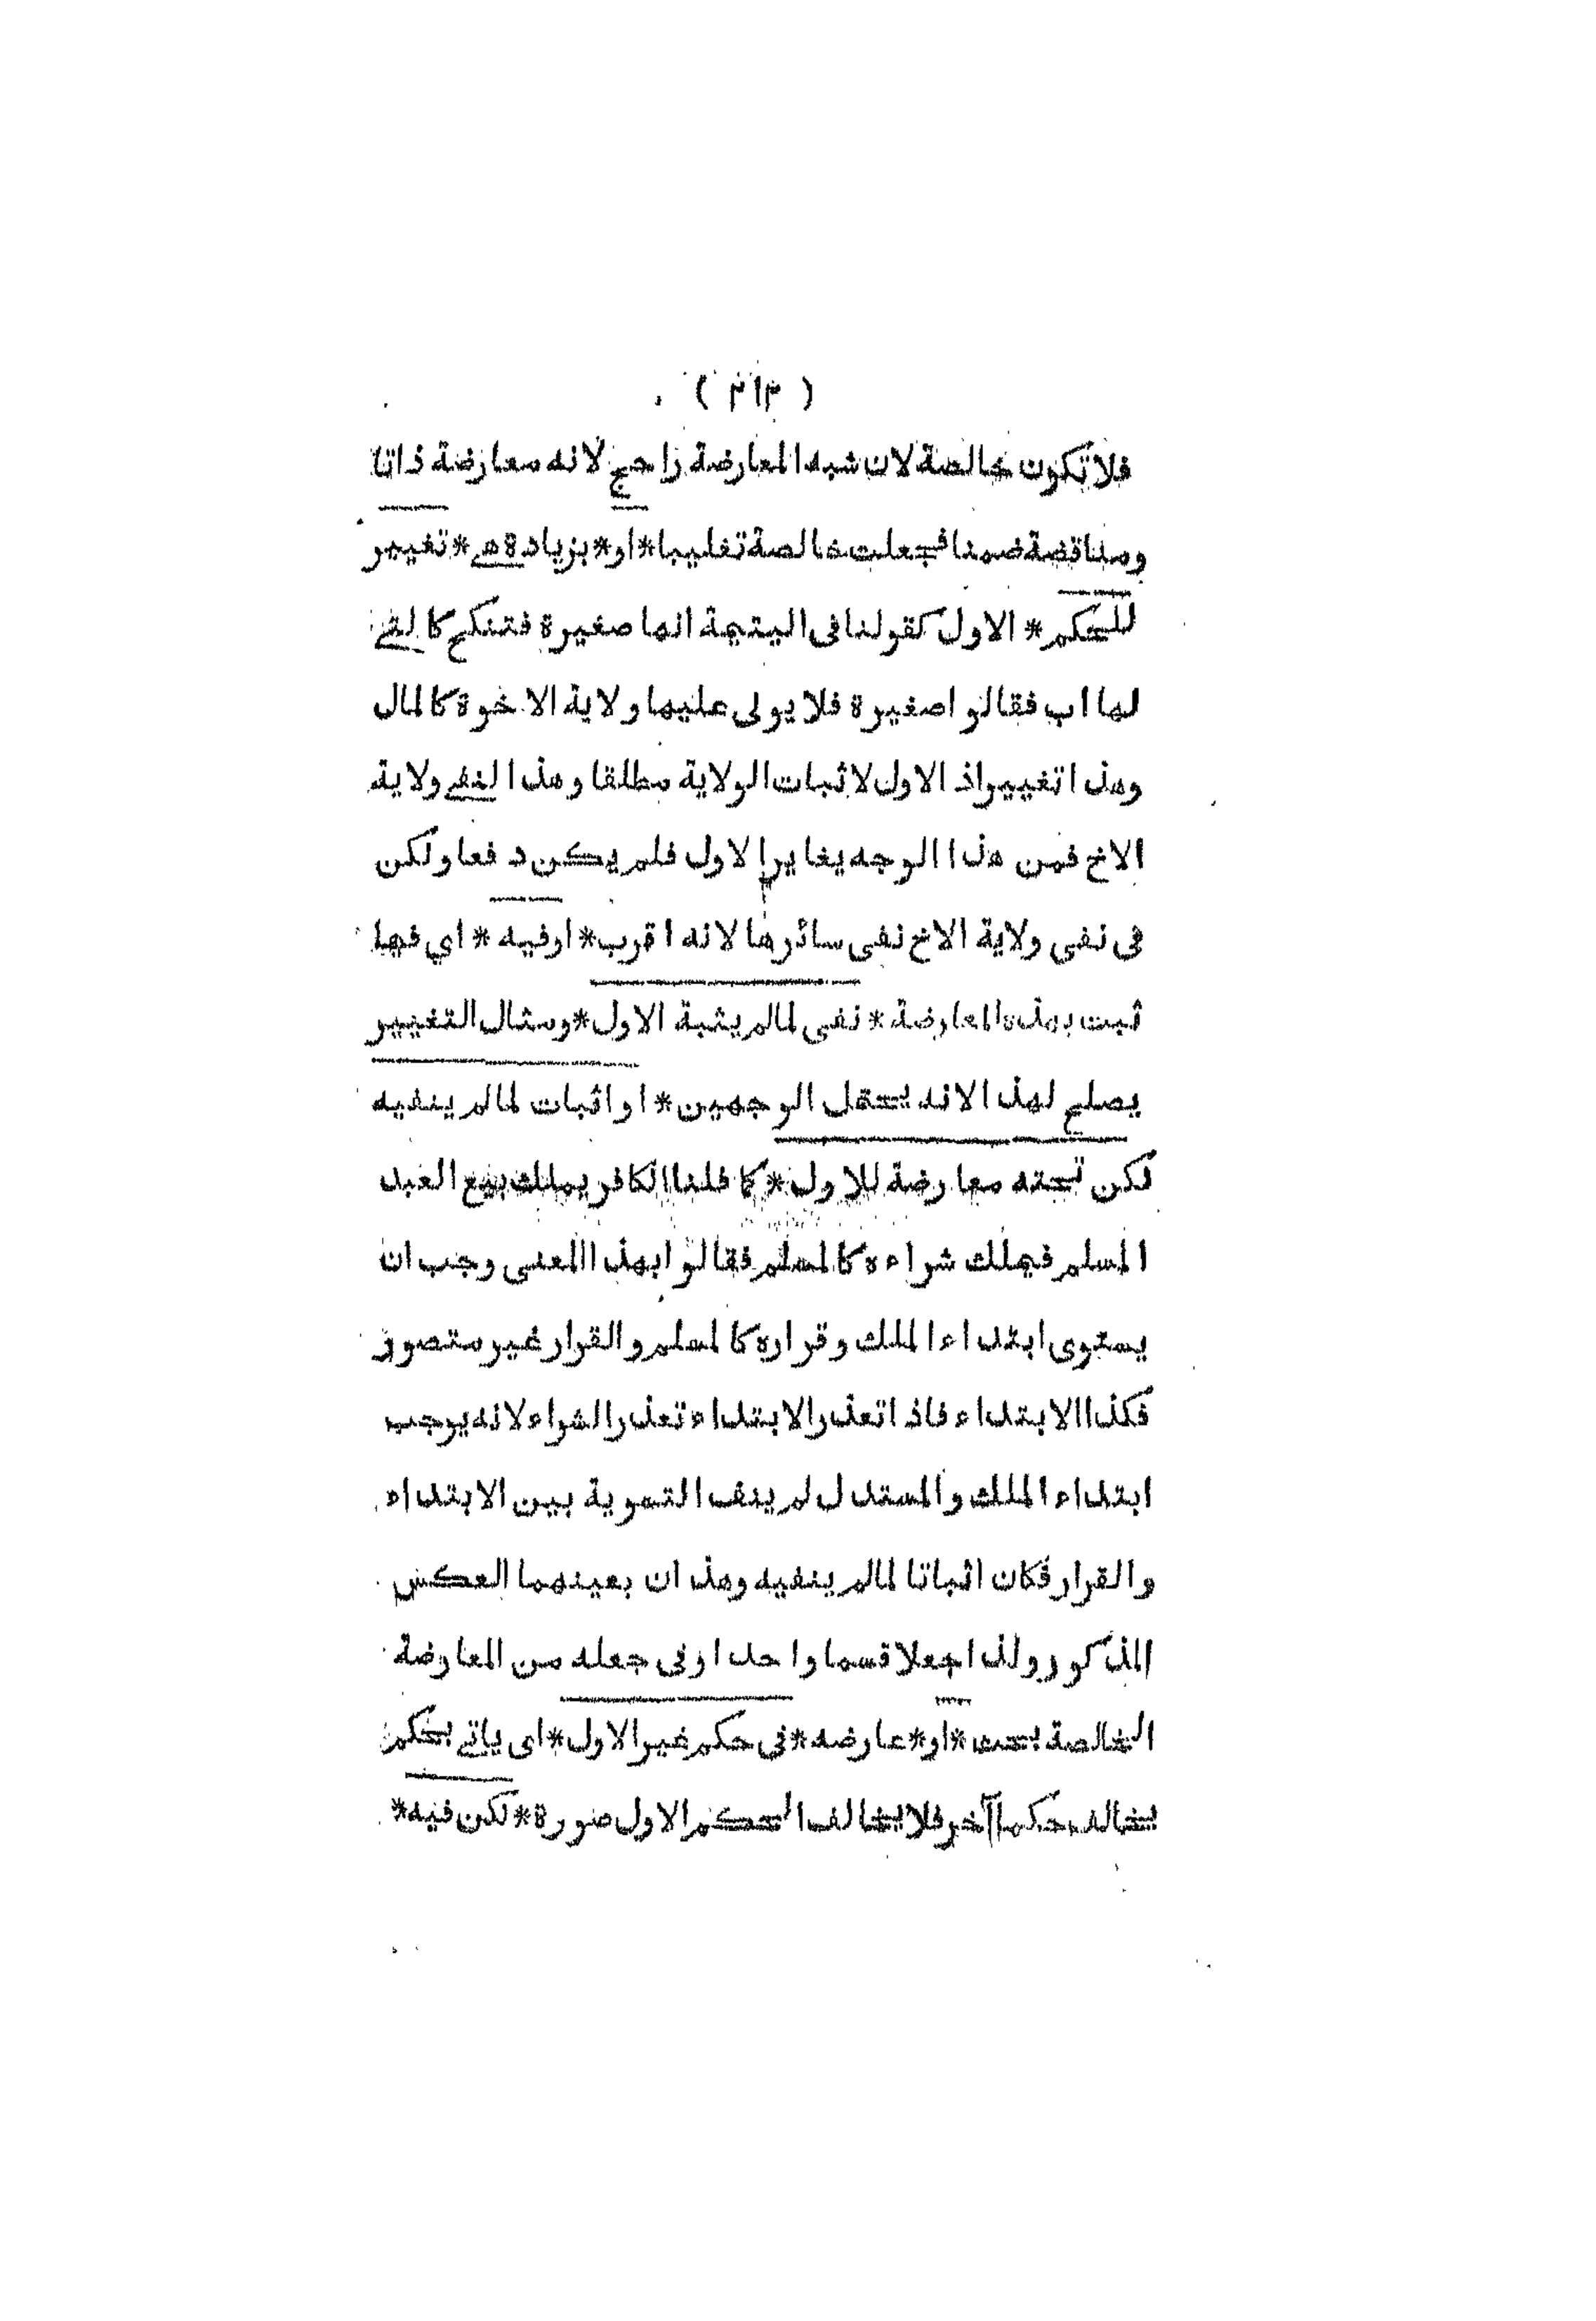 ( ٣١٣ )
فلا تكون خالصة لان شبه المعارضة راجح لانه معارضة ذاتا
ومناقضة ضمنا فجعلت خالصة تغليبا * او * بزيادة هي * تغيير
للحكم * الاول كقولنا في اليتيمة انها صغيرة فتنكح كالتي
لها اب فقالوا صغيرة فلا يولى عليها ولاية الاخوة كالمال
وهذا تغيير اذ الاول لاثبات الولاية مطلقا وهذا لنفي ولاية
الاخ فمن هذا الوجه يغاير الاول فلم يكن دفعا ولكن
في نفي ولاية الاخ نفى سائرها لانه اقرب * اوفيه * اي فيما
ثبت بهذه المعارضة * نفى لمالم يثبة الاول * ومثال التغيير
يصلح لهذا لانه يحتمل الوجهين * او اثبات لمالم ينفيه
لكن تحته معارضة للاول * كما قلنا الكافر يملك بيع العبد
المسلم فيملك شراءه كالمسلم فقالوا بهذا المعنى وجب ان
يستوى ابتداء الملك وقراره كالمسلم والقرار غير متصور
فكذا الابتداء فاذا تعذر الابتداء تعذر الشراء لانه يوجب
ابتداء الملك والمستدل لم ينف التسوية بين الابتداء
والقرار فكان اثباتا لمالم ينفيه وهذان بعينهما العكس
المذكور ولذا جعلا قسما واحدا وفى جعله من المعارضة
الخالصة بحث * او * عارضه * في حكم غير الاول * اى ياتي بحكم
يخالف حكما آخر فلا يخالف الحكم الاول صورة * لكن فيه *